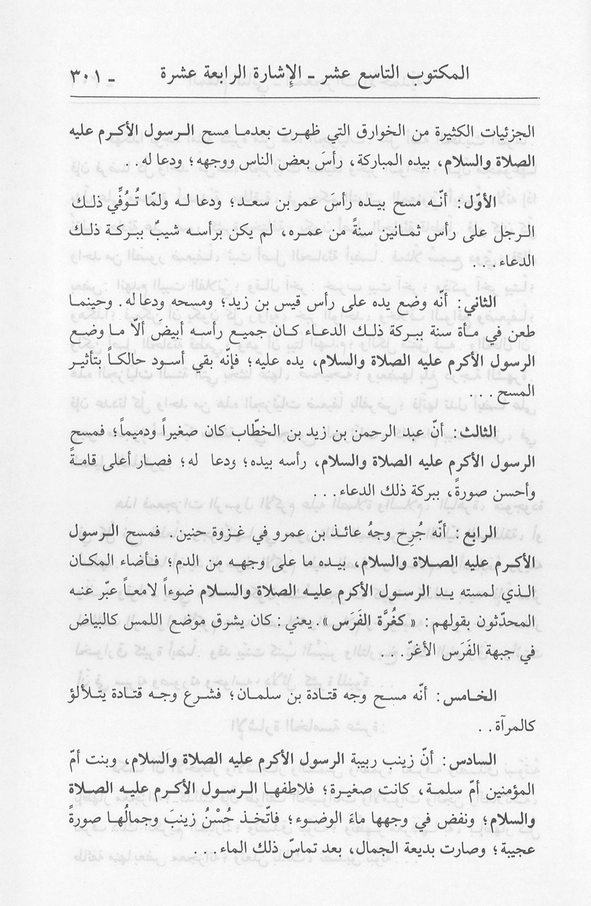 المكتوب التاسع عشر ـ الإشارة الرابعة عشرة ـ ٣٠١
الجزئيات الكثيرة من الخوارق التي ظهرت بعدما مسح الرسول الأكرم عليه
الصلاة والسلام، بيده المباركة، رأسَ بعض الناس ووجهه؛ ودعا له..
الأوّل: أنّه مسح بيده رأسَ عمر بن سعد؛ ودعا له ولمّا تُوُفِّي ذلك
الرجل على رأس ثمانين سنةً من عمره، لم يكن برأسه شيبٌ ببركة ذلك
الدعاء...
الثاني: أنّه وضع يده على رأس قيس بن زيد؛ ومسحه ودعا له. وحينما
طعن في مأة سنة ببركة ذلك الدعاء كان جميع رأسه أبيضَ ألاّ ما وضع
الرسول الأكرم عليه الصلاة والسلام، يده عليه؛ فإنّه بقي أسود حالكاً بتأثير
المسح...
الثالث: أنّ عبد الرحمن بن زيد بن الخطّاب كان صغيراً ودميماً؛ فمسح
الرسول الأكرم عليه الصلاة والسلام، رأسه بيده؛ ودعا له؛ فصار أعلى قامةً
وأحسن صورةً، ببركة ذلك الدعاء...
الرابع: أنّه جُرِح وجهُ عائذ بن عمرو في غزوة حنين. فمسح الرسول
الأكرم عليه الصلاة والسلام، بيده ما على وجهه من الدم؛ فأضاء المكان
الذي لمسته يد الرسول الأكرم عليه الصلاة والسلام ضوءاً لامعاً عبّر عنه
المحدّثون بقولهم: «كغُرَّة الفَرَس». يعني: كان يشرق موضع اللمس كالبياض
في جبهة الفَرَس الأغرّ...
الخامس: أنّه مسح وجه قتادة بن سلمان؛ فشرع وجه قتادة يتلألؤ
كالمرآة..
السادس: أنّ زينب ربيبة الرسول الأكرم عليه الصلاة والسلام، وبنت أمّ
المؤمنين أمّ سلمة، كانت صغيرة؛ فلاطفها الرسول الأكرم عليه الصلاة
والسلام؛ ونفض في وجهها ماءَ الوضوء؛ فاتّخذ حُسْنُ زينبَ وجمالُها صورةً
عجيبة؛ وصارت بديعة الجمال، بعد تماسّ ذلك الماء...